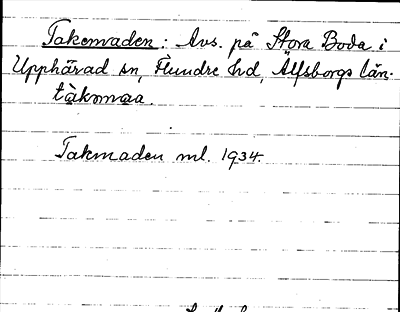 Takemaden: Avs. på Stora Boda i
Upphärad sn, Flundre hd, Älfsborgs län.
tàkəmaa.
Takmaden ml. 1934.